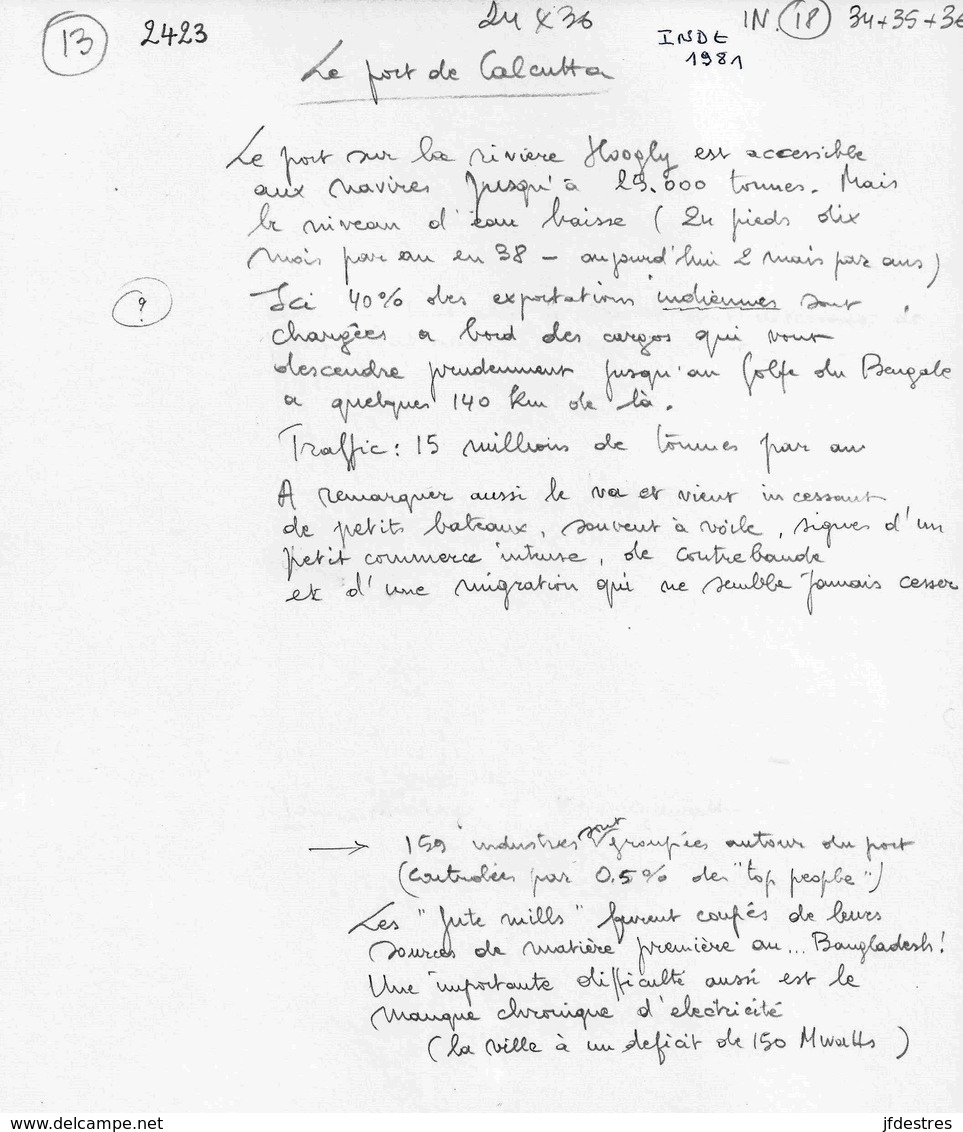 13 2423 24 x 36 IN. 18 34+35+36
INDE
1981
Le port de Calcutta
Le port sur la rivière Hoogly est accessible
aux navires jusqu'à 25.000 tonnes. Mais
le niveau d'eau baisse (24 pieds dix
mois par an en 38 - aujourd'hui 2 mois par ans)
? Ici 40% des exportations indiennes sont
chargées a bord des cargos qui vont
descendre prudemment jusqu'au Golfe du Bengale
a quelques 140 km de là.
Traffic: 15 millions de tonnes par an
A remarquer aussi le va et vient incessant
de petits bateaux, souvent à voile, signes d'un
petit commerce intense, de contrebande
et d'une migration qui ne semble jamais cesser
→ 159 industries sont groupées autour du port
(controlées par 0.5% des "top people")
Les "Jute mills" furent coupés de leurs
sources de matière première au... Bangladesh!
Une importante difficulté aussi est le
manque chronique d'electricité
(la ville à un deficit de 150 Mwatts)
www.delcampe.net jfdestres